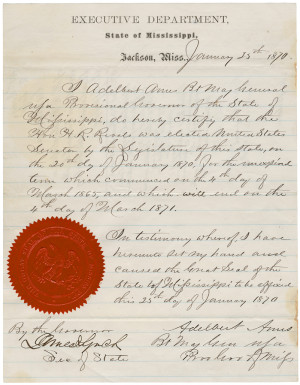 EXECUTIVE DEPARTMENT,
State of Mississippi,
Jackson, Miss. January 25th 1870.
I Adelbert Ames Bt Maj General
USA Provisional Governor of the State of
Mississippi, do hereby certify that the
Hon H. R. Revels was elected United States
Senator by the Legislature of this state, on
the 20th day of January 1870, for the unexpired
term which commenced on the 4th day of
March 1865, and which will end on the
4th day of March 1871.
In testimony whereof, I have
hereunto set my hand and
caused the Great Seal of the
State of Mississippi to be affixed
this 25th day of January 1870
By the Governor
James Lynch
Sec of State
Adelbert Ames
Bt Maj Gen USA
Prov Gov of Miss